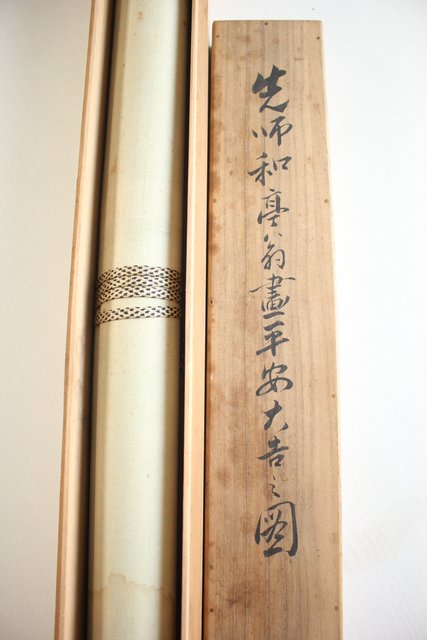 先師和亭翁畫平安大吉之圖